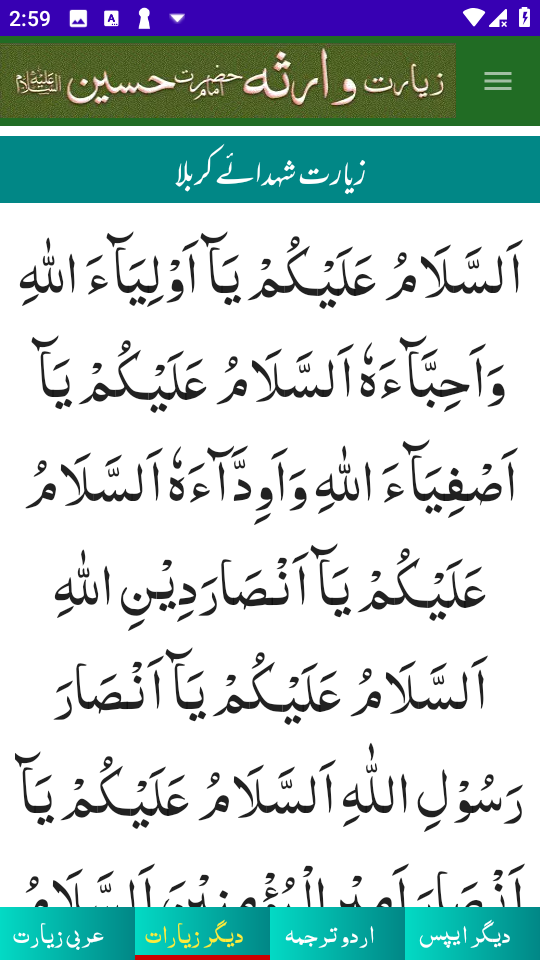 2:59
زیارت وارثہ حضرت امام حسین علیہ السلام
زیارت شہدائے کربلا
اَلسَّلَامُ عَلَيْكُمْ يَآ اَوْلِيَآءَ اللّٰهِ
وَاَحِبَّآءَهٗ اَلسَّلَامُ عَلَيْكُمْ يَآ
اَصْفِيَآءَ اللّٰهِ وَاَوِدَّآءَهٗ اَلسَّلَامُ
عَلَيْكُمْ يَآ اَنْصَارَدِيْنِ اللّٰهِ
اَلسَّلَامُ عَلَيْكُمْ يَآ اَنْصَارَ
رَسُوْلِ اللّٰهِ اَلسَّلَامُ عَلَيْكُمْ يَآ
اَنْصَارَ اَمِيْرِ الْمُؤْمِنِيْنَ اَلسَّلَامُ
عربی زیارت
دیگر زیارات
اردو ترجمہ
دیگر ایپس